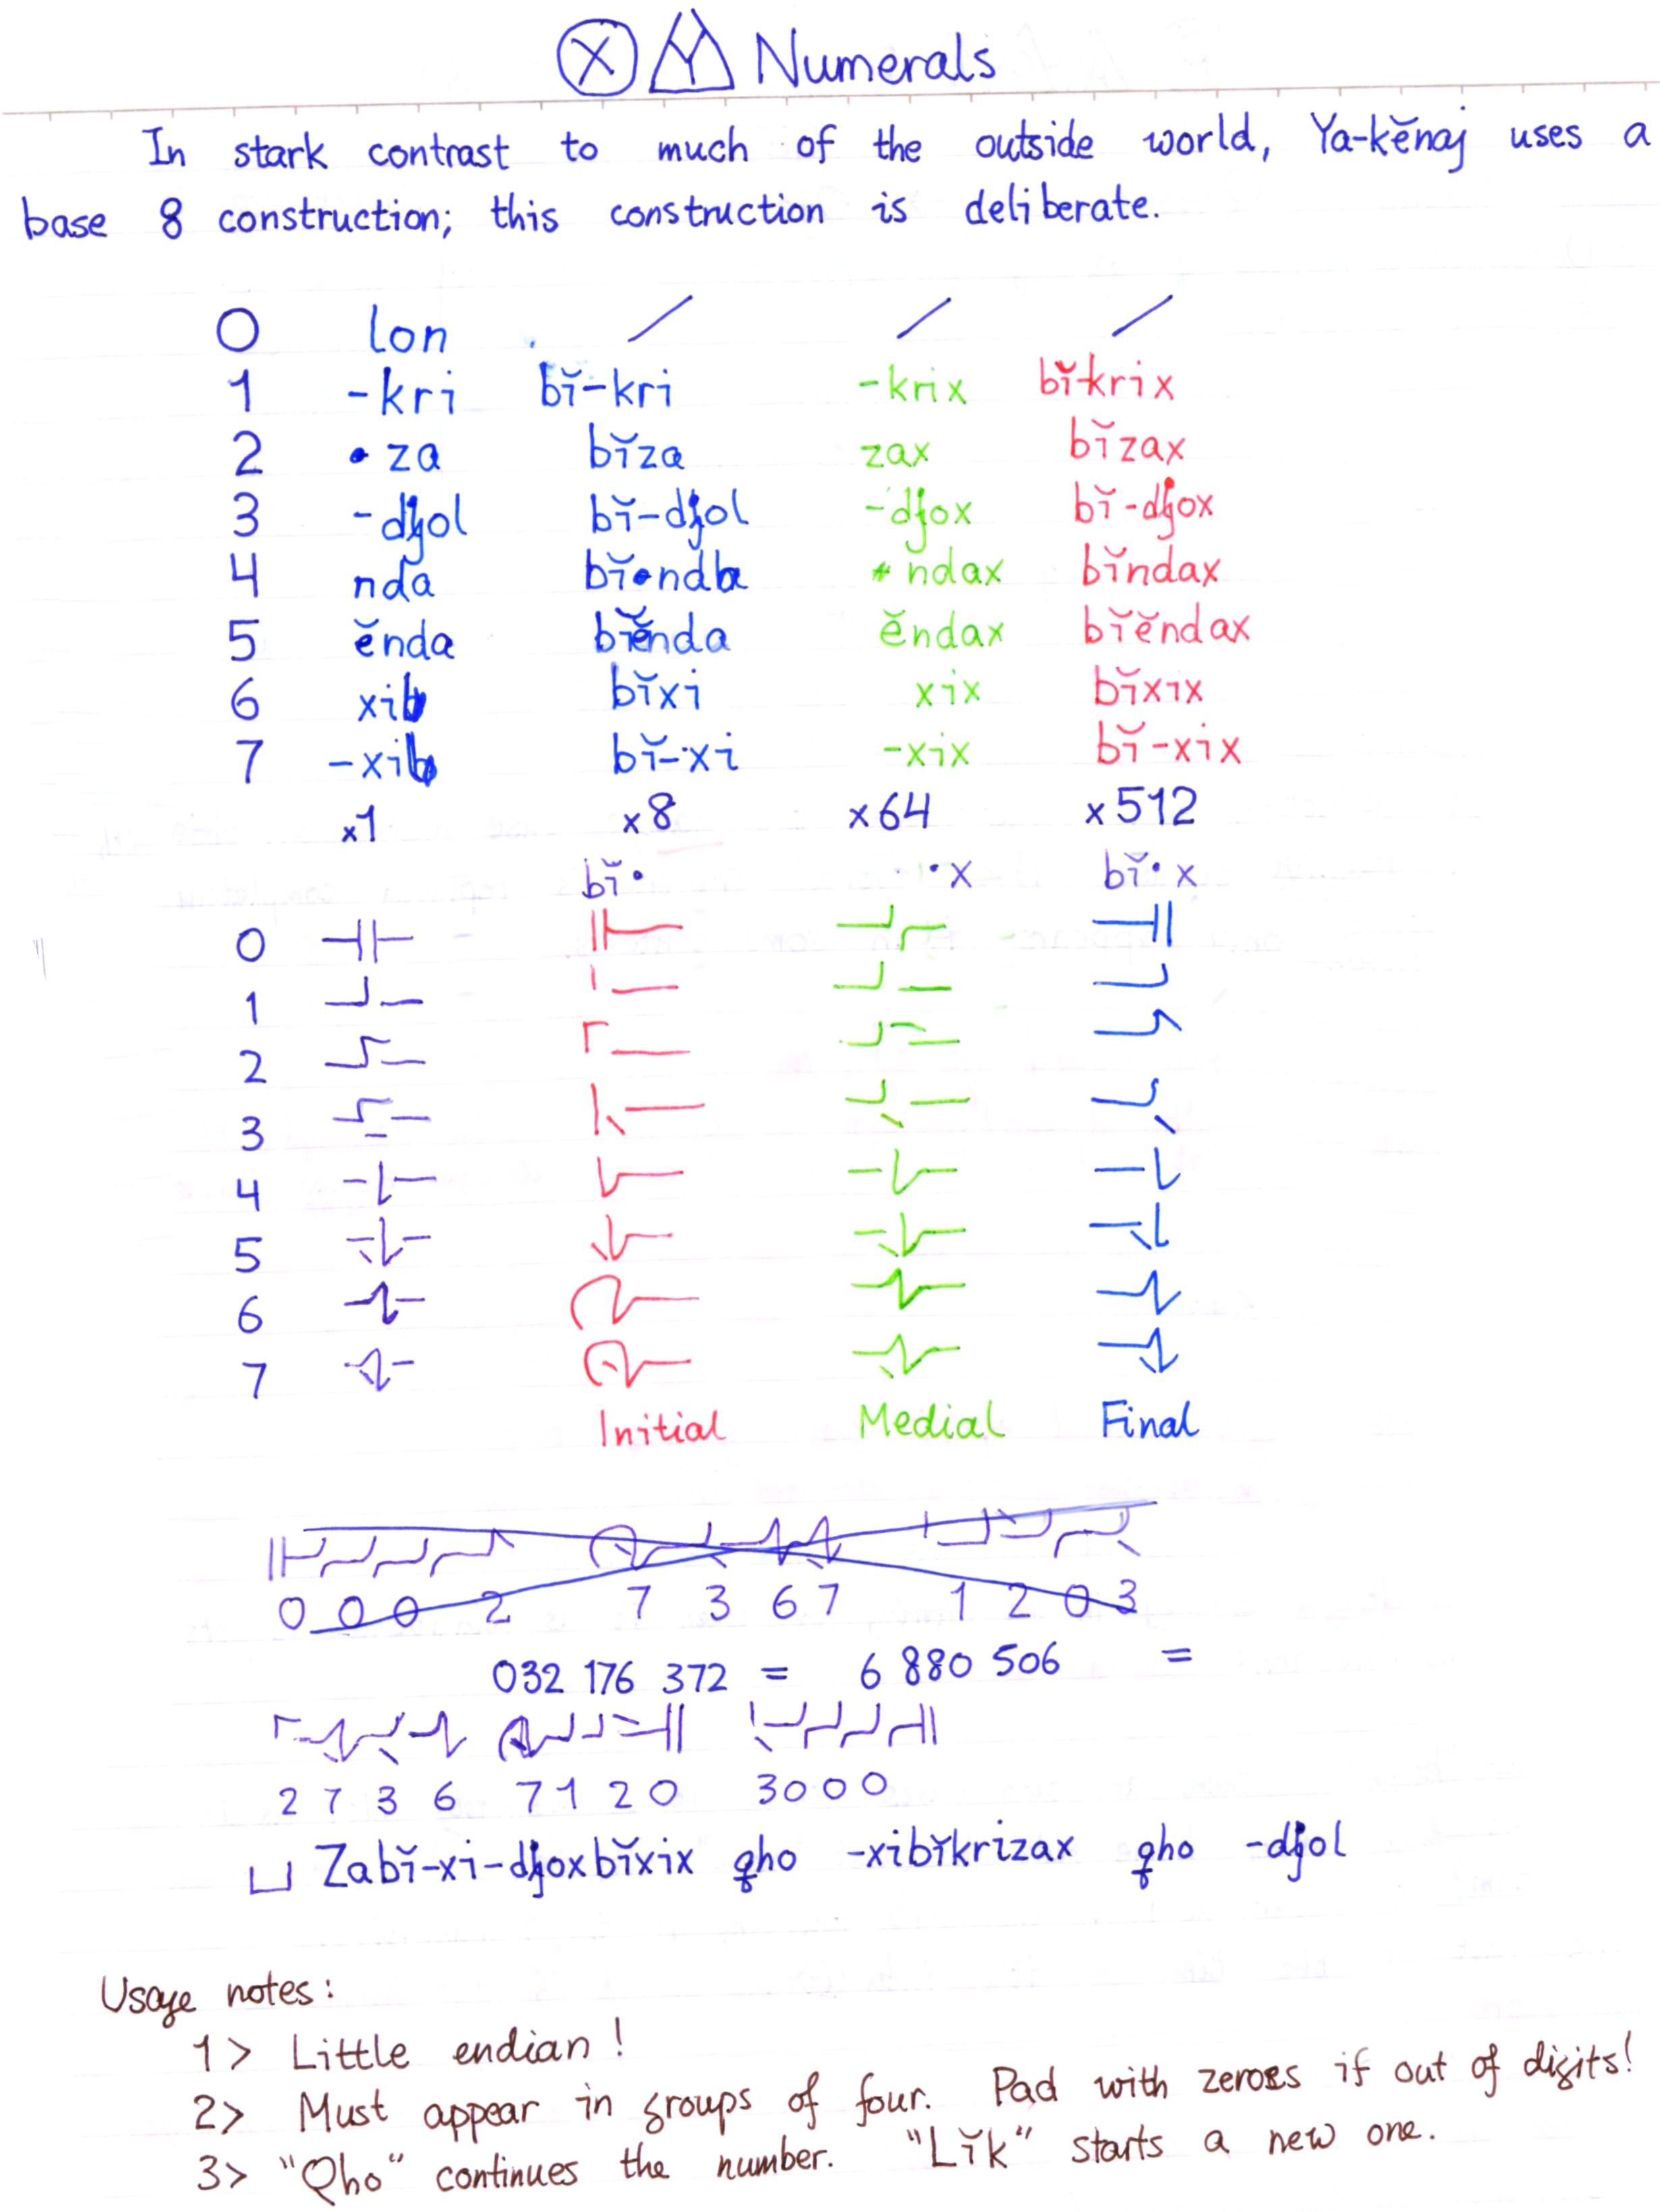 Numerals
In stark contrast to much of the outside world, Ya-kĕnaj uses a
base 8 construction; this construction is deliberate.
0 lon / / /
1 -kri bĭ-kri -krix bĭ-krix
2 za bĭza zax bĭzax
3 -dɟol bĭ-dɟol -dɟox bĭ-dɟox
4 nda bĭnda ndax bĭndax
5 ĕnda bĭĕnda ĕndax bĭĕndax
6 xi bĭxi xix bĭxix
7 -xi bĭ-xi -xix bĭ-xix
x1 x8 x64 x512
bĭ• •x bĭ•x
0
1
2
3
4
5
6
7
Initial Medial Final
0 0 0 2 7 3 6 7 1 2 0 3
032 176 372 = 6 880 506 =
2 7 3 6 7 1 2 0 3 0 0 0
Zabĭ-xi-dɟoxbĭxix qho -xibĭkrizax qho -dɟol
Usage notes:
1> Little endian!
2> Must appear in groups of four. Pad with zeroes if out of digits!
3> "Qho" continues the number. "Lĭk" starts a new one.